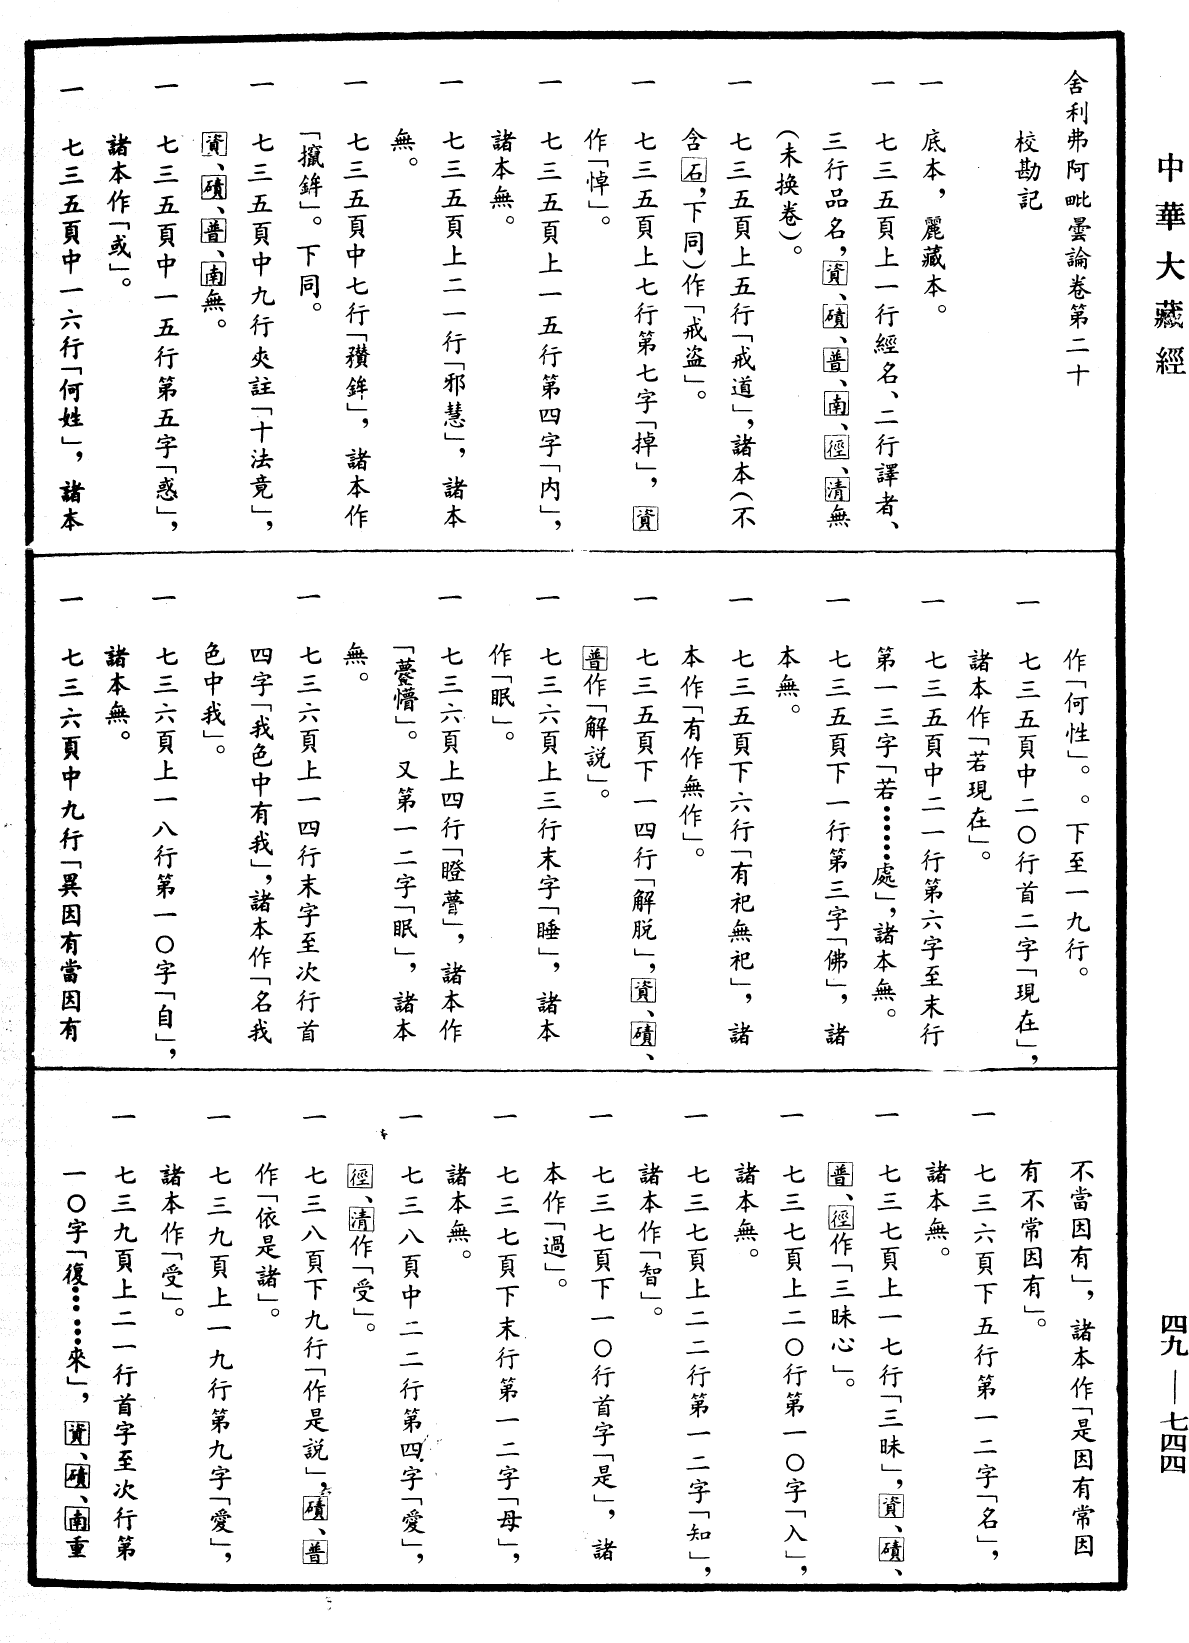 中華大藏經
舍利弗阿毗曇論卷第二十
校勘記
一 底本，麗藏本。
一 七三五頁上一行經名、二行譯者、
三行品名，資、磧、普、南、徑、清無
（未换卷）。
一 七三五頁上五行「戒道」，諸本（不
含石，下同）作「戒盜」。
一 七三五頁上七行第七字「掉」，資
作「悼」。
一 七三五頁上一五行第四字「内」，
諸本無。
一 七三五頁上二一行「邪慧」，諸本
無。
一 七三五頁中七行「穳鉾」，諸本作
「攛鉾」。下同。
一 七三五頁中九行夾註「十法竟」，
資、磧、普、南無。
一 七三五頁中一五行第五字「惑」，
諸本作「或」。
一 七三五頁中一六行「何姓」，諸本
作「何性」。。下至一九行。
一 七三五頁中二〇行首二字「現在」，
諸本作「若現在」。
一 七三五頁中二一行第六字至末行
第一三字「若……處」，諸本無。
一 七三五頁下一行第三字「佛」，諸
本無。
一 七三五頁下六行「有祀無祀」，諸
本作「有作無作」。
一 七三五頁下一四行「解脱」，資、磧、
普作「解説」。
一 七三六頁上三行末字「睡」，諸本
作「眠」。
一 七三六頁上四行「瞪瞢」，諸本作
「薆懵」。又第一二字「眠」，諸本
無。
一 七三六頁上一四行末字至次行首
四字「我色中有我」，諸本作「名我
色中我」。
一 七三六頁上一八行第一〇字「自」，
諸本無。
一 七三六頁中九行「異因有當因有
不當因有」，諸本作「是因有常因
有不常因有」。
一 七三六頁下五行第一二字「名」，
諸本無。
一 七三七頁上一七行「三昧」，資、磧、
普、徑作「三昧心」。
一 七三七頁上二〇行第一〇字「入」，
諸本無。
一 七三七頁上二二行第一二字「知」，
諸本作「智」。
一 七三七頁下一〇行首字「是」，諸
本作「過」。
一 七三七頁下末行第一二字「母」，
諸本無。
一 七三八頁中二二行第四字「愛」，
徑、清作「受」。
一 七三八頁下九行「作是説」，磧、普
作「依是諸」。
一 七三九頁上一九行第九字「愛」，
諸本作「受」。
一 七三九頁上二一行首字至次行第
一〇字「復……來」，資、磧、南重
四九—七四四